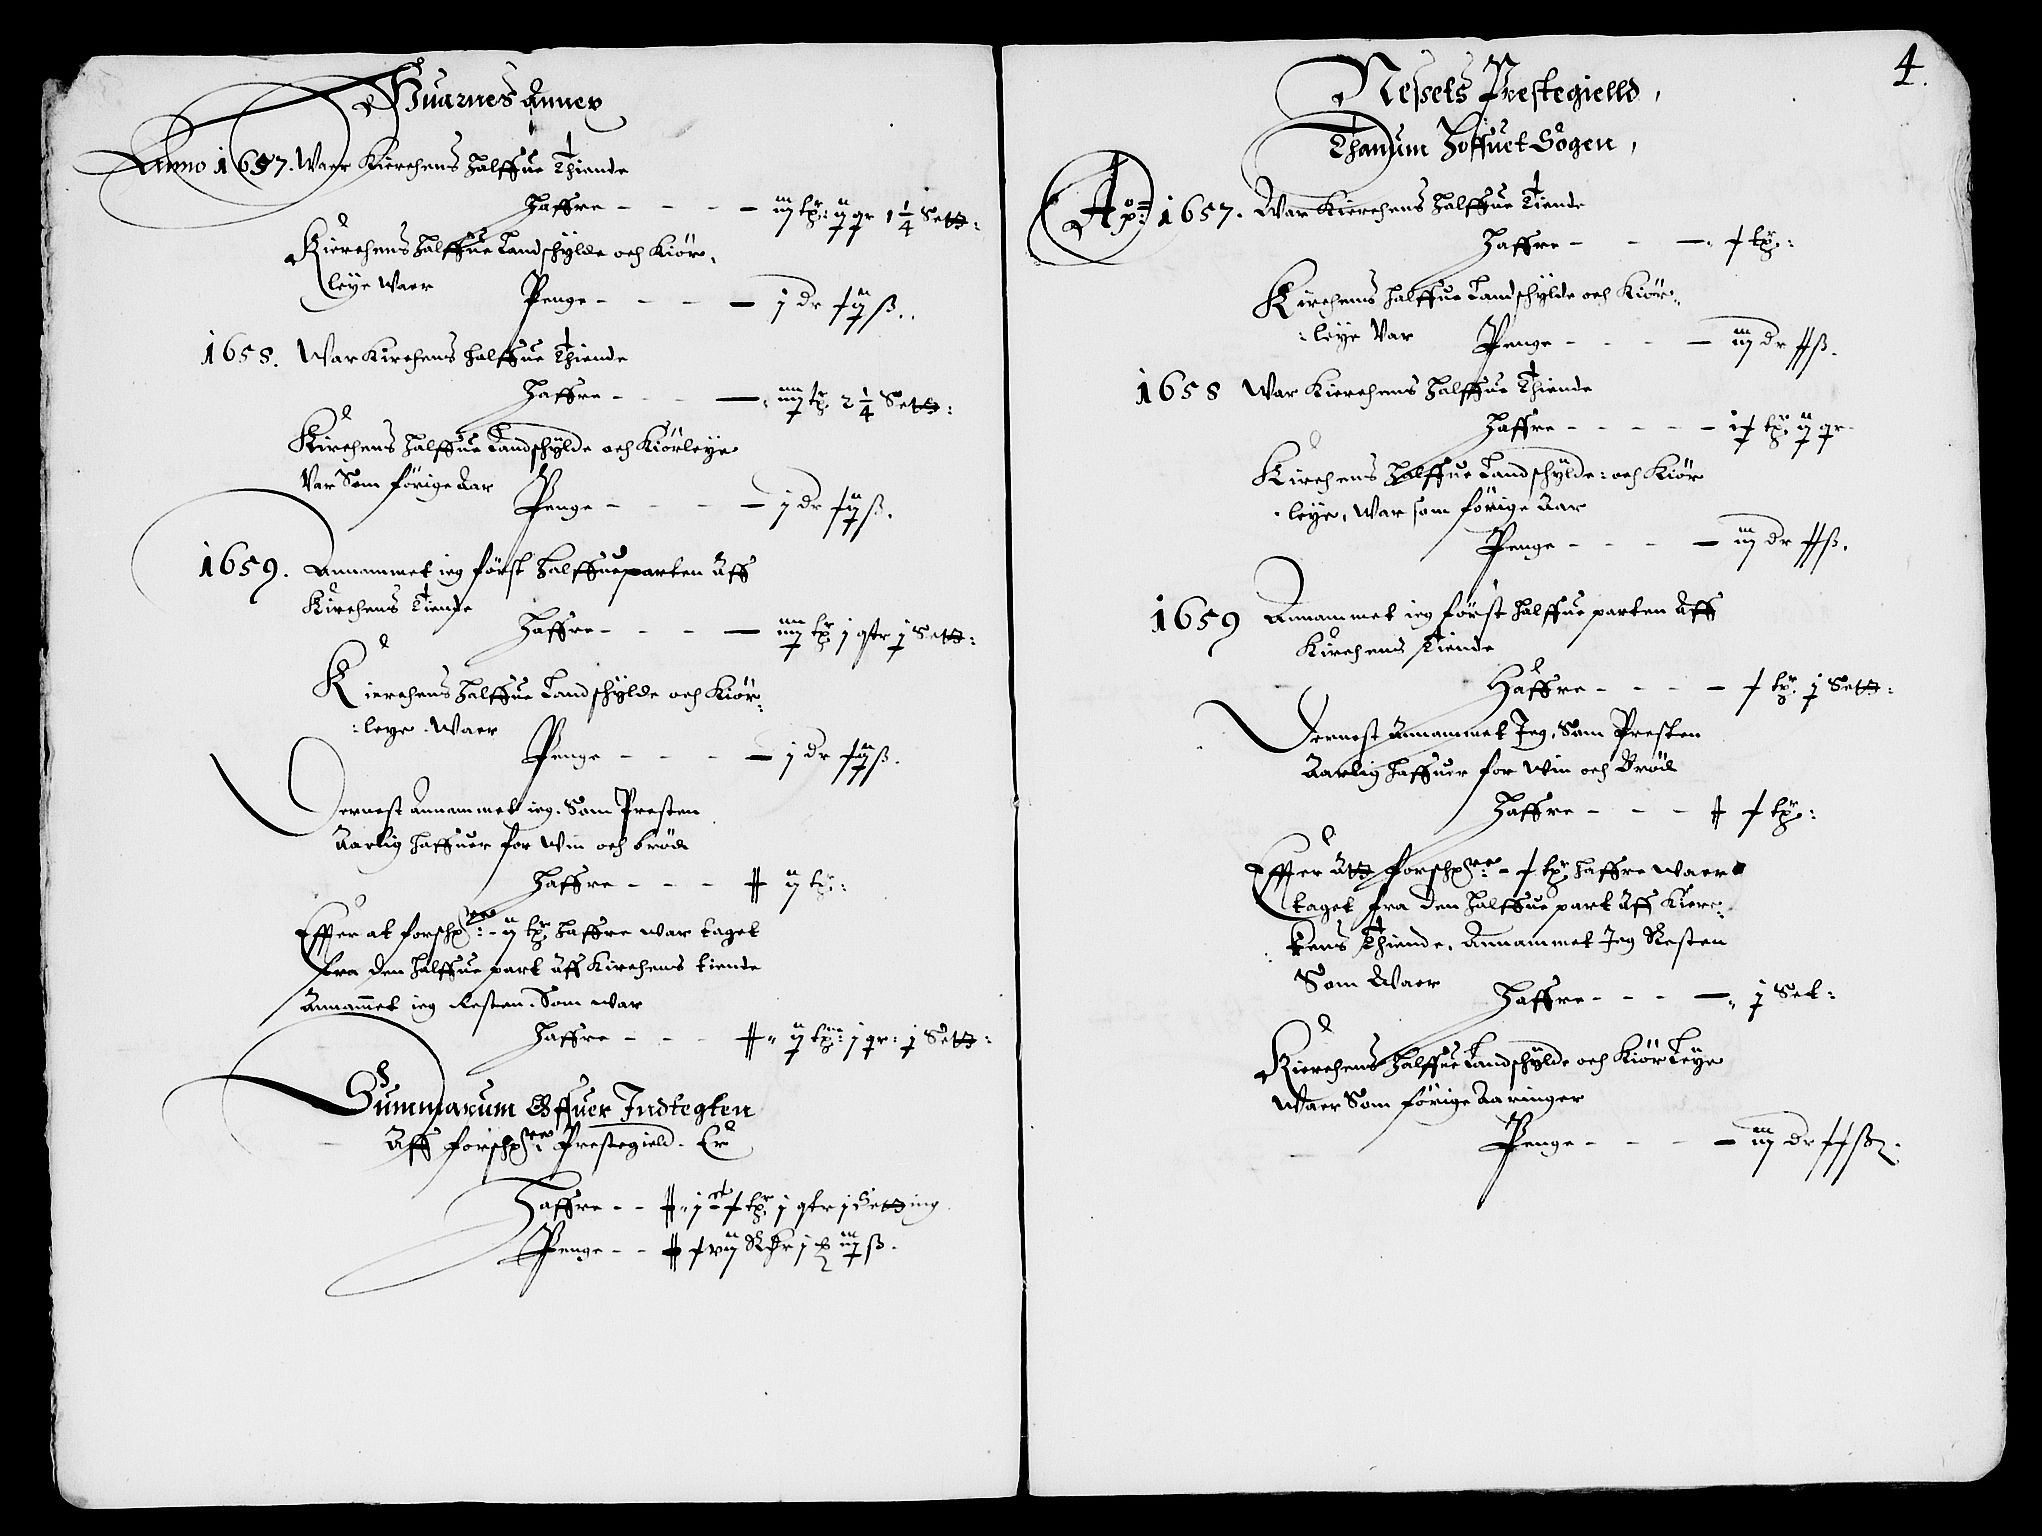 Huarnes Annex
Anno 1657. Waer Kierchens Halffue Thiende
Haffre - - - - iij tr: ij qr 1 1/4 Sett:
Kierchens Halffue Landschylde och Kiör,
leye Waer
Penge - - - - j dr ß.
1658. War Kirchens halffue Thiende
Haffre - - - - iiij tr 2 1/4 Sett:
Kirchens Halffue Landschylde och Kiörleye
Var Som förige Aar
Penge - - - - j dr ß.
1659. Annammet ieg först Halffueparten Aff
Kirchens Tiende
Haffre - - - - iiij tr j qtr j Sett:
Kierchens Halffue Landschylde och Kiör:
:leye Waer
Penge - - - - j dr ß.
Dernest annammet ieg, Som Presten
Aarlig haffuer for Win och bröd
Haffre - - - ij tr:
Effter at forschr: - ij tr Haffre war taget
fra den halffue part Aff Kirchens tiende
Anammet ieg Resten, Som war
Haffre - - - ij tr: j qr: j Sett:
Summarum Offuer Indtegten
Aff forschr: Prestegield - Er
Haffre - - tr j qtr j Setting
Penge - - Rdr j ß.
4.
Nessets Prestegielld,
Thanum Hoffuet Sogen,
Ao: 1657. War Kierchens Halffue Tiende
Haffre - - - - tr:
Kirchens Halffue Landschylde och Kiör:
:leye Var
Penge - - - - iij dr ß.
1658 War Kierchens Halffue Thiende
Haffre - - - - - tr ij qr
Kirchens Halffue Landschylde: och Kiör
leye, War som förige Aar
Penge - - - - iij dr ß.
1659 Annammet ieg först halffue parten Aff
Kirchens Tiende
Haffre - - - - tr. j Sett:
Dernest Annammet Jeg, Som Presten
Aarlig haffuer for Win och Bröd
Haffre - - - tr:
Effter Att forschr: - tr haffre waer
taget fra den Halffue part Aff Kierc:
:kens Thiende, Annammet Jeg Resten
Som Waer
Haffre - - - - j Set:
Kierchens Halffue Landschylde och Kiör Leye
Waer Som förige Aaringer
Penge - - - - iij dr ß.